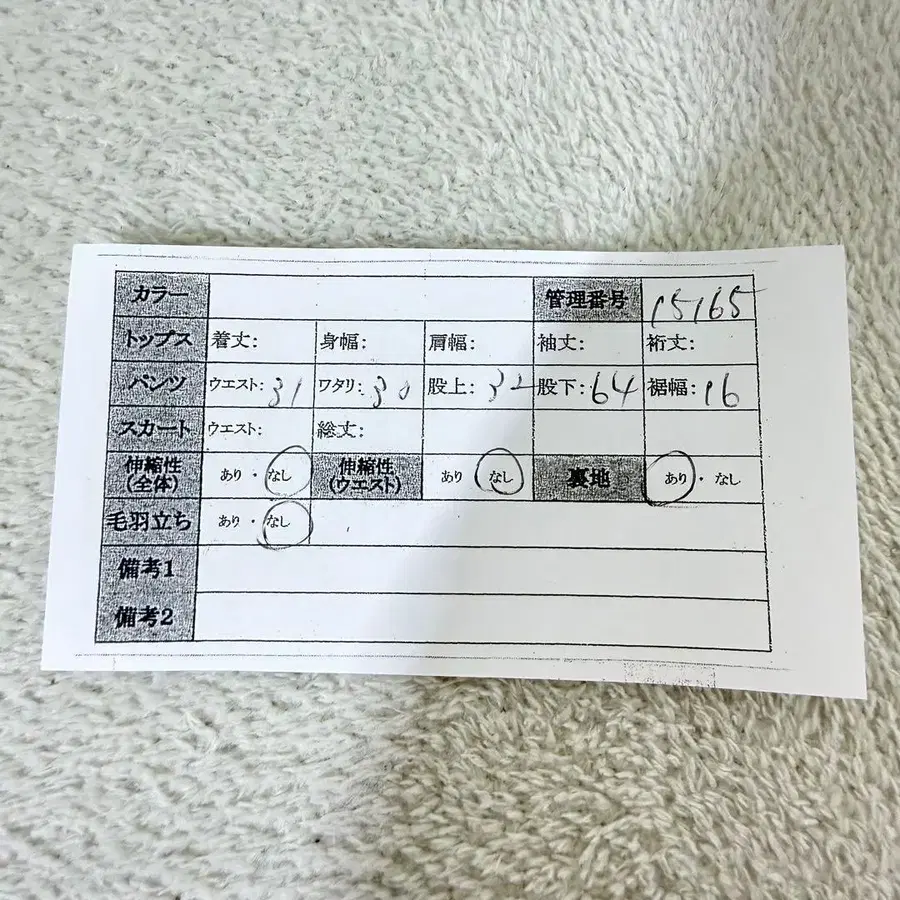 カラー 管理番号 15165
トップス 着丈: 身幅: 肩幅: 袖丈: 裄丈:
パンツ ウエスト: 31 ワタリ: 30 股上: 32 股下: 64 裾幅: 16
スカート ウエスト: 総丈:
伸縮性(全体) あり・なし 伸縮性(ウエスト) あり なし 裏地 あり・なし
毛羽立ち あり・なし
備考1
備考2